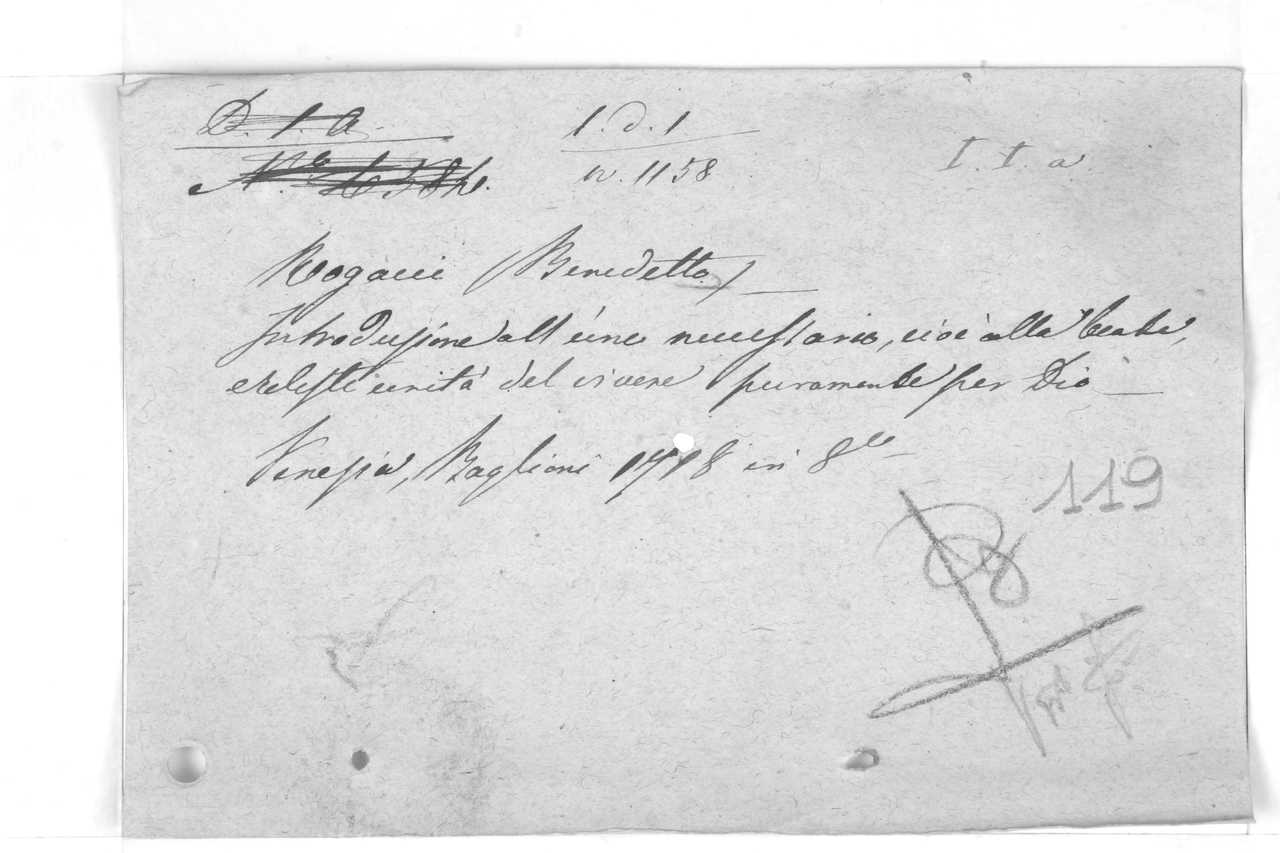 D. 1. A. 1. d. 1. I. I. a.
N.º n. 1158
Rogacci (Benedetto)
Introduzione all' uno necessario, cioè alla beata,
e celeste unità del vivere puramente per Dio
Venezia, Baglioni 1718 in 8.vo
119